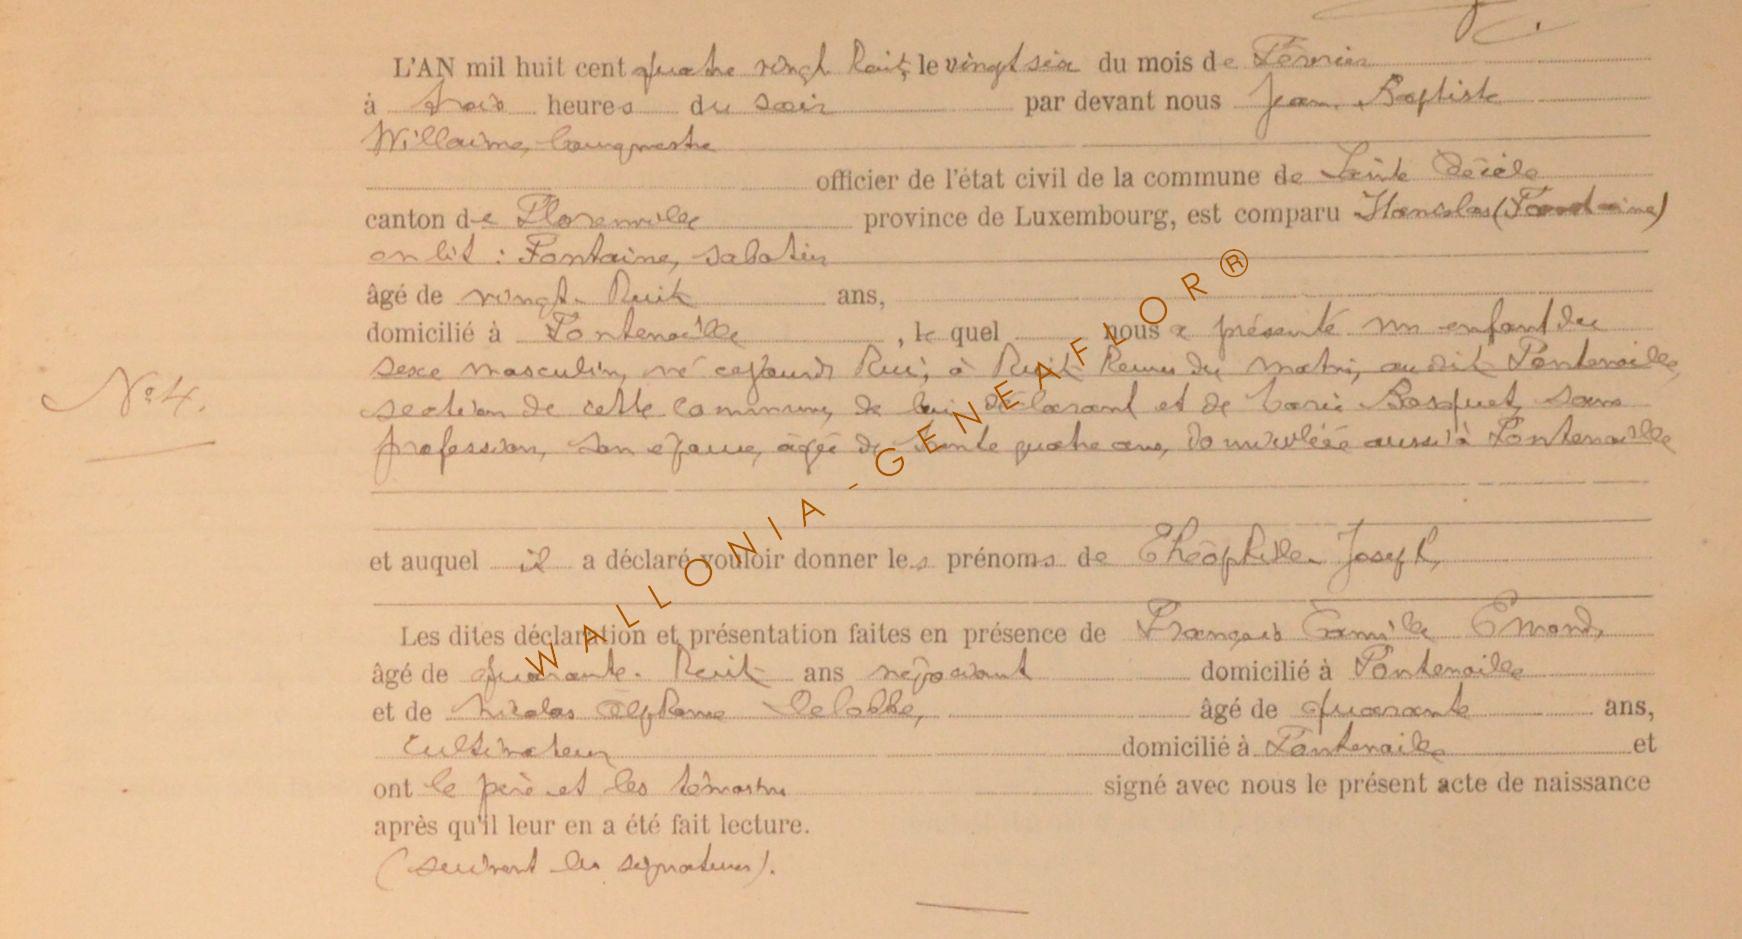 L'AN mil huit cent quatre vingt huit, le vingt six du mois de Février
à trois heures du soir par devant nous Jean Baptiste
Willaime, bourgmestre
officier de l'état civil de la commune de Sainte Cécile
canton de Florenville province de Luxembourg, est comparu Stanislas (Fontaine)
on lit : Fontaine, sabotier
âgé de vingt-huit ans,
domicilié à Fontenoille, le quel nous a présenté un enfant du
sexe masculin, né cejourd'hui, à huit heures du matin, audit Fontenoille,
N° 4.
section de cette commune, de lui déclarant et de Marie Bosquet, sans
profession, son épouse, âgée de trente quatre ans, domiciliée aussi à Fontenoille
et auquel il a déclaré vouloir donner les prénoms de Théophile Joseph,
Les dites déclaration et présentation faites en présence de François Camille Emond,
âgé de quarante-huit ans négociant domicilié à Fontenoille
et de Nicolas Alphonse Delobbe, âgé de quarante ans,
cultivateur domicilié à Fontenoille et
ont le père et les témoins signé avec nous le présent acte de naissance
après qu'il leur en a été fait lecture.
(suivent les signatures).
WALLONIA-GENEAFLOR®